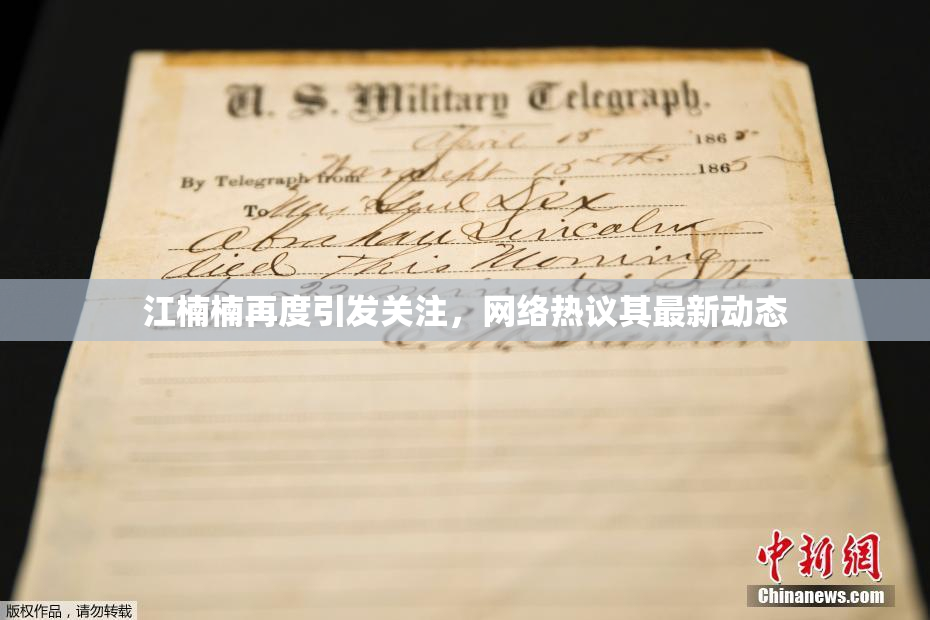 U. S. Military Telegraph.
April 15 1865
By Telegraph from War Dept 15th 1865
To Maj Genl Dix
Abraham Lincoln
died This Morning
at 22 minutes after
江楠楠再度引发关注，网络热议其最新动态
E. M. Stanton
中新网
Chinanews.com
版权作品，请勿转载